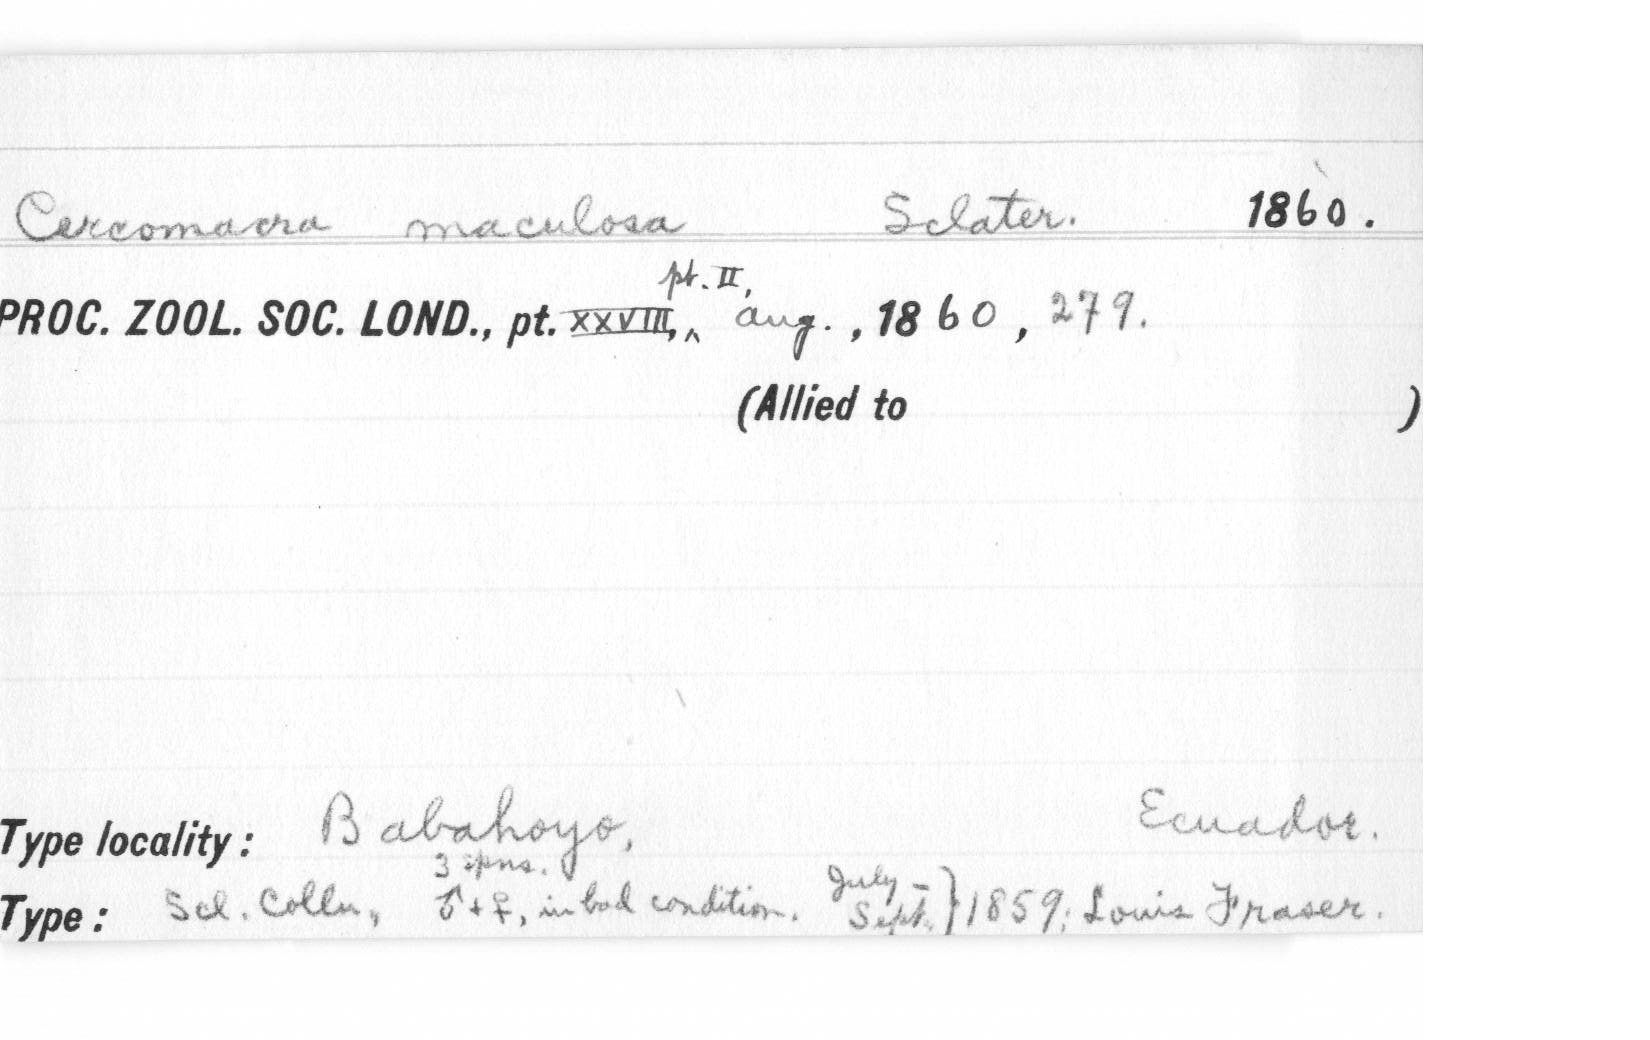 Cercomacra maculosa Sclater. 1860.
pt. II,
PROC. ZOOL. SOC. LOND., pt. XXVIII, ^ Aug. , 1860 , 279.
(Allied to )
Type locality: Babahoyo, Ecuador.
3 spns.
Type: Scl. Colln, ♂+♀, in bad condition. July – Sept. } 1859; Louis Fraser.